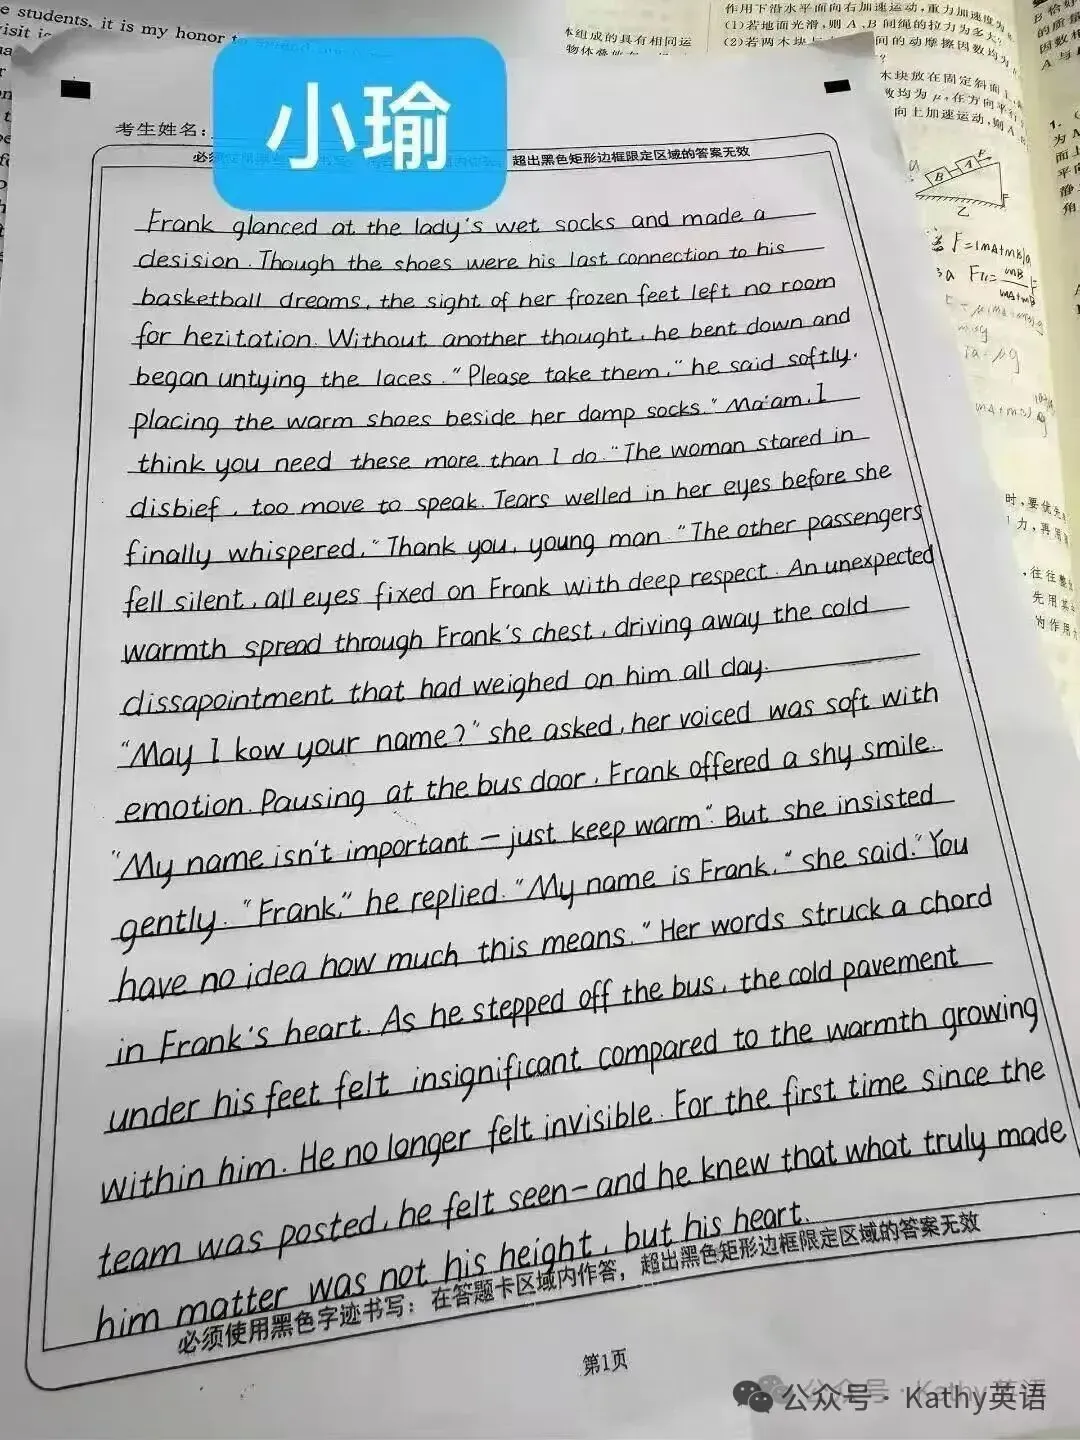 e students, it is my honor
visit i
考生姓名:
小瑜
超出黑色矩形边框限定区域的答案无效
Frank glanced at the lady's wet socks and made a
desision. Though the shoes were his last connection to his
basketball dreams, the sight of her frozen feet left no room
for hezitation. Without another thought, he bent down and
began untying the laces. "Please take them," he said softly.
placing the warm shoes beside her damp socks." Ma'am, I
think you need these more than I do. "The woman stared in
disbief, too move to speak. Tears welled in her eyes before she
finally whispered, "Thank you, young man. "The other passengers
fell silent, all eyes fixed on Frank with deep respect. An unexpected
warmth spread through Frank's chest, driving away the cold
dissapointment that had weighed on him all day.
"May I kow your name?" she asked, her voiced was soft with
emotion. Pausing at the bus door, Frank offered a shy smile.
"My name isn't important — just keep warm". But she insisted
gently. "Frank," he replied. "My name is Frank." she said. "You
have no idea how much this means." Her words struck a chord
in Frank's heart. As he stepped off the bus, the cold pavement
under his feet felt insignificant compared to the warmth growing
within him. He no longer felt invisible. For the first time since the
team was posted, he felt seen — and he knew that what truly made
him matter was not his height, but his heart.
必须使用黑色字迹书写：在答题卡区域内作答，超出黑色矩形边框限定区域的答案无效
第1页
公众号 · Kathy英语
本组成的具有相同运
作用下沿水平面向右加速运动，重力加速度为
(1)若地面光滑，则A、B间绳的拉力为多大?
(2)若两木块与 间的动摩擦因数均为
木块放在固定斜面上
数均为μ，在方向平行
向上加速运动，则A
B A F
乙
时，要优先
力，再用
，往往整
先用某
的作用力